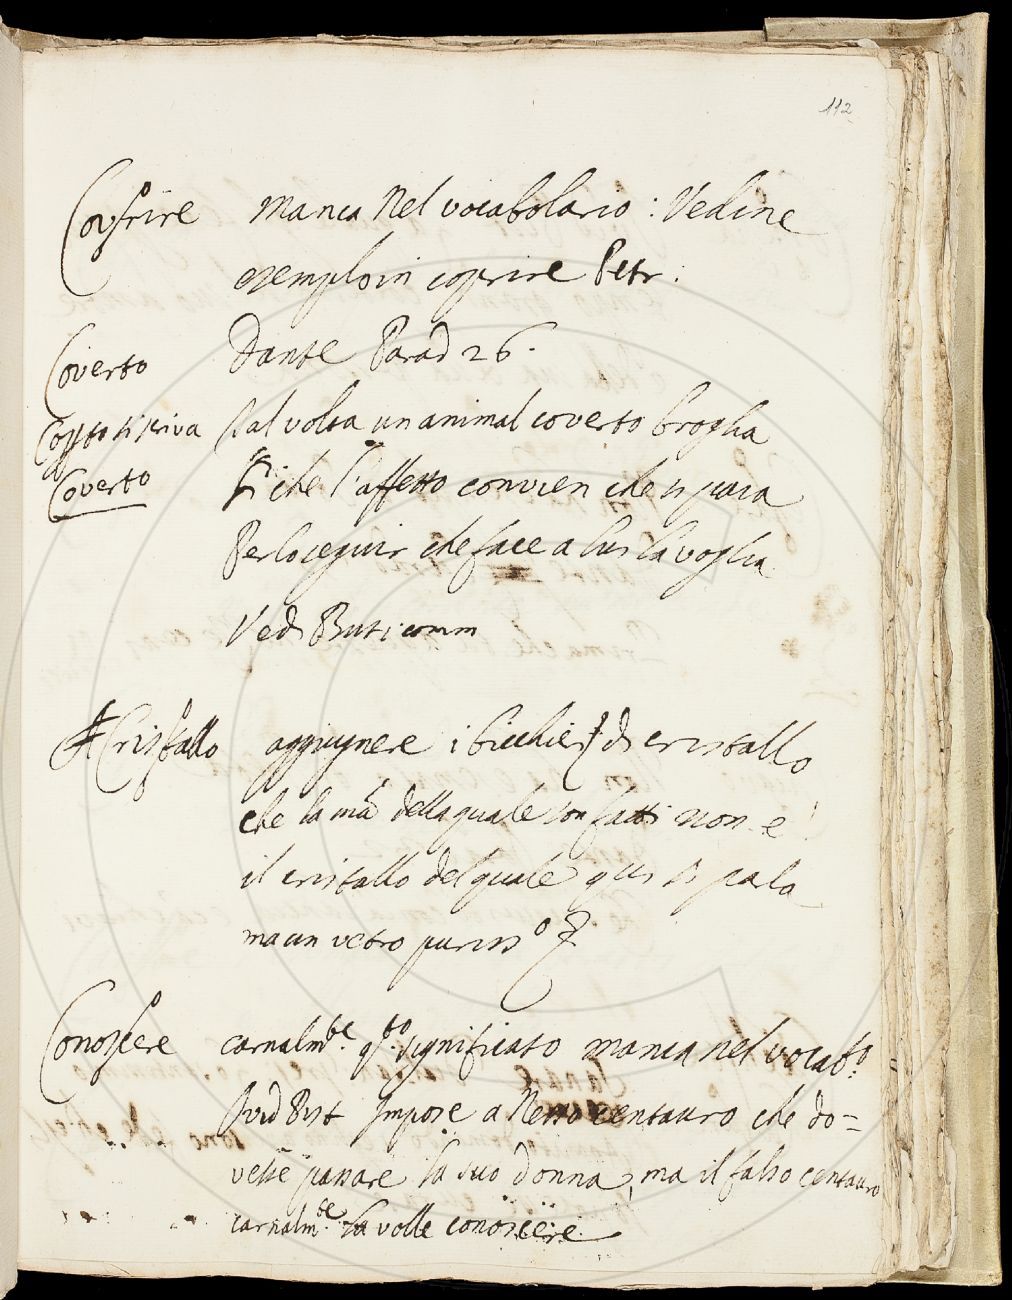 112
Coprire manca nel vocabolario : Vedine
esemplo in coprire Petr.
Coverto Dante Parad 26.
Coperto si scriva Tal volta un animal coverto broglia
Coverto Sì che l'affetto convien che si paia
Per lo seguir che face a lui la voglia.
Vedi Buti comm
Cristallo aggiugnere i bicchieri di cristallo
che la mã della quale son fatti non e
il cristallo del quale qui si parla
ma un vetro puriss.o
Conoscere carnalm.te q.to significato manca nel vocab.o
Ovid Pist Impose a Nesso centauro che do=
vesse passare la sua donna, ma il falso centauro
carnalm.te la volle conoscere